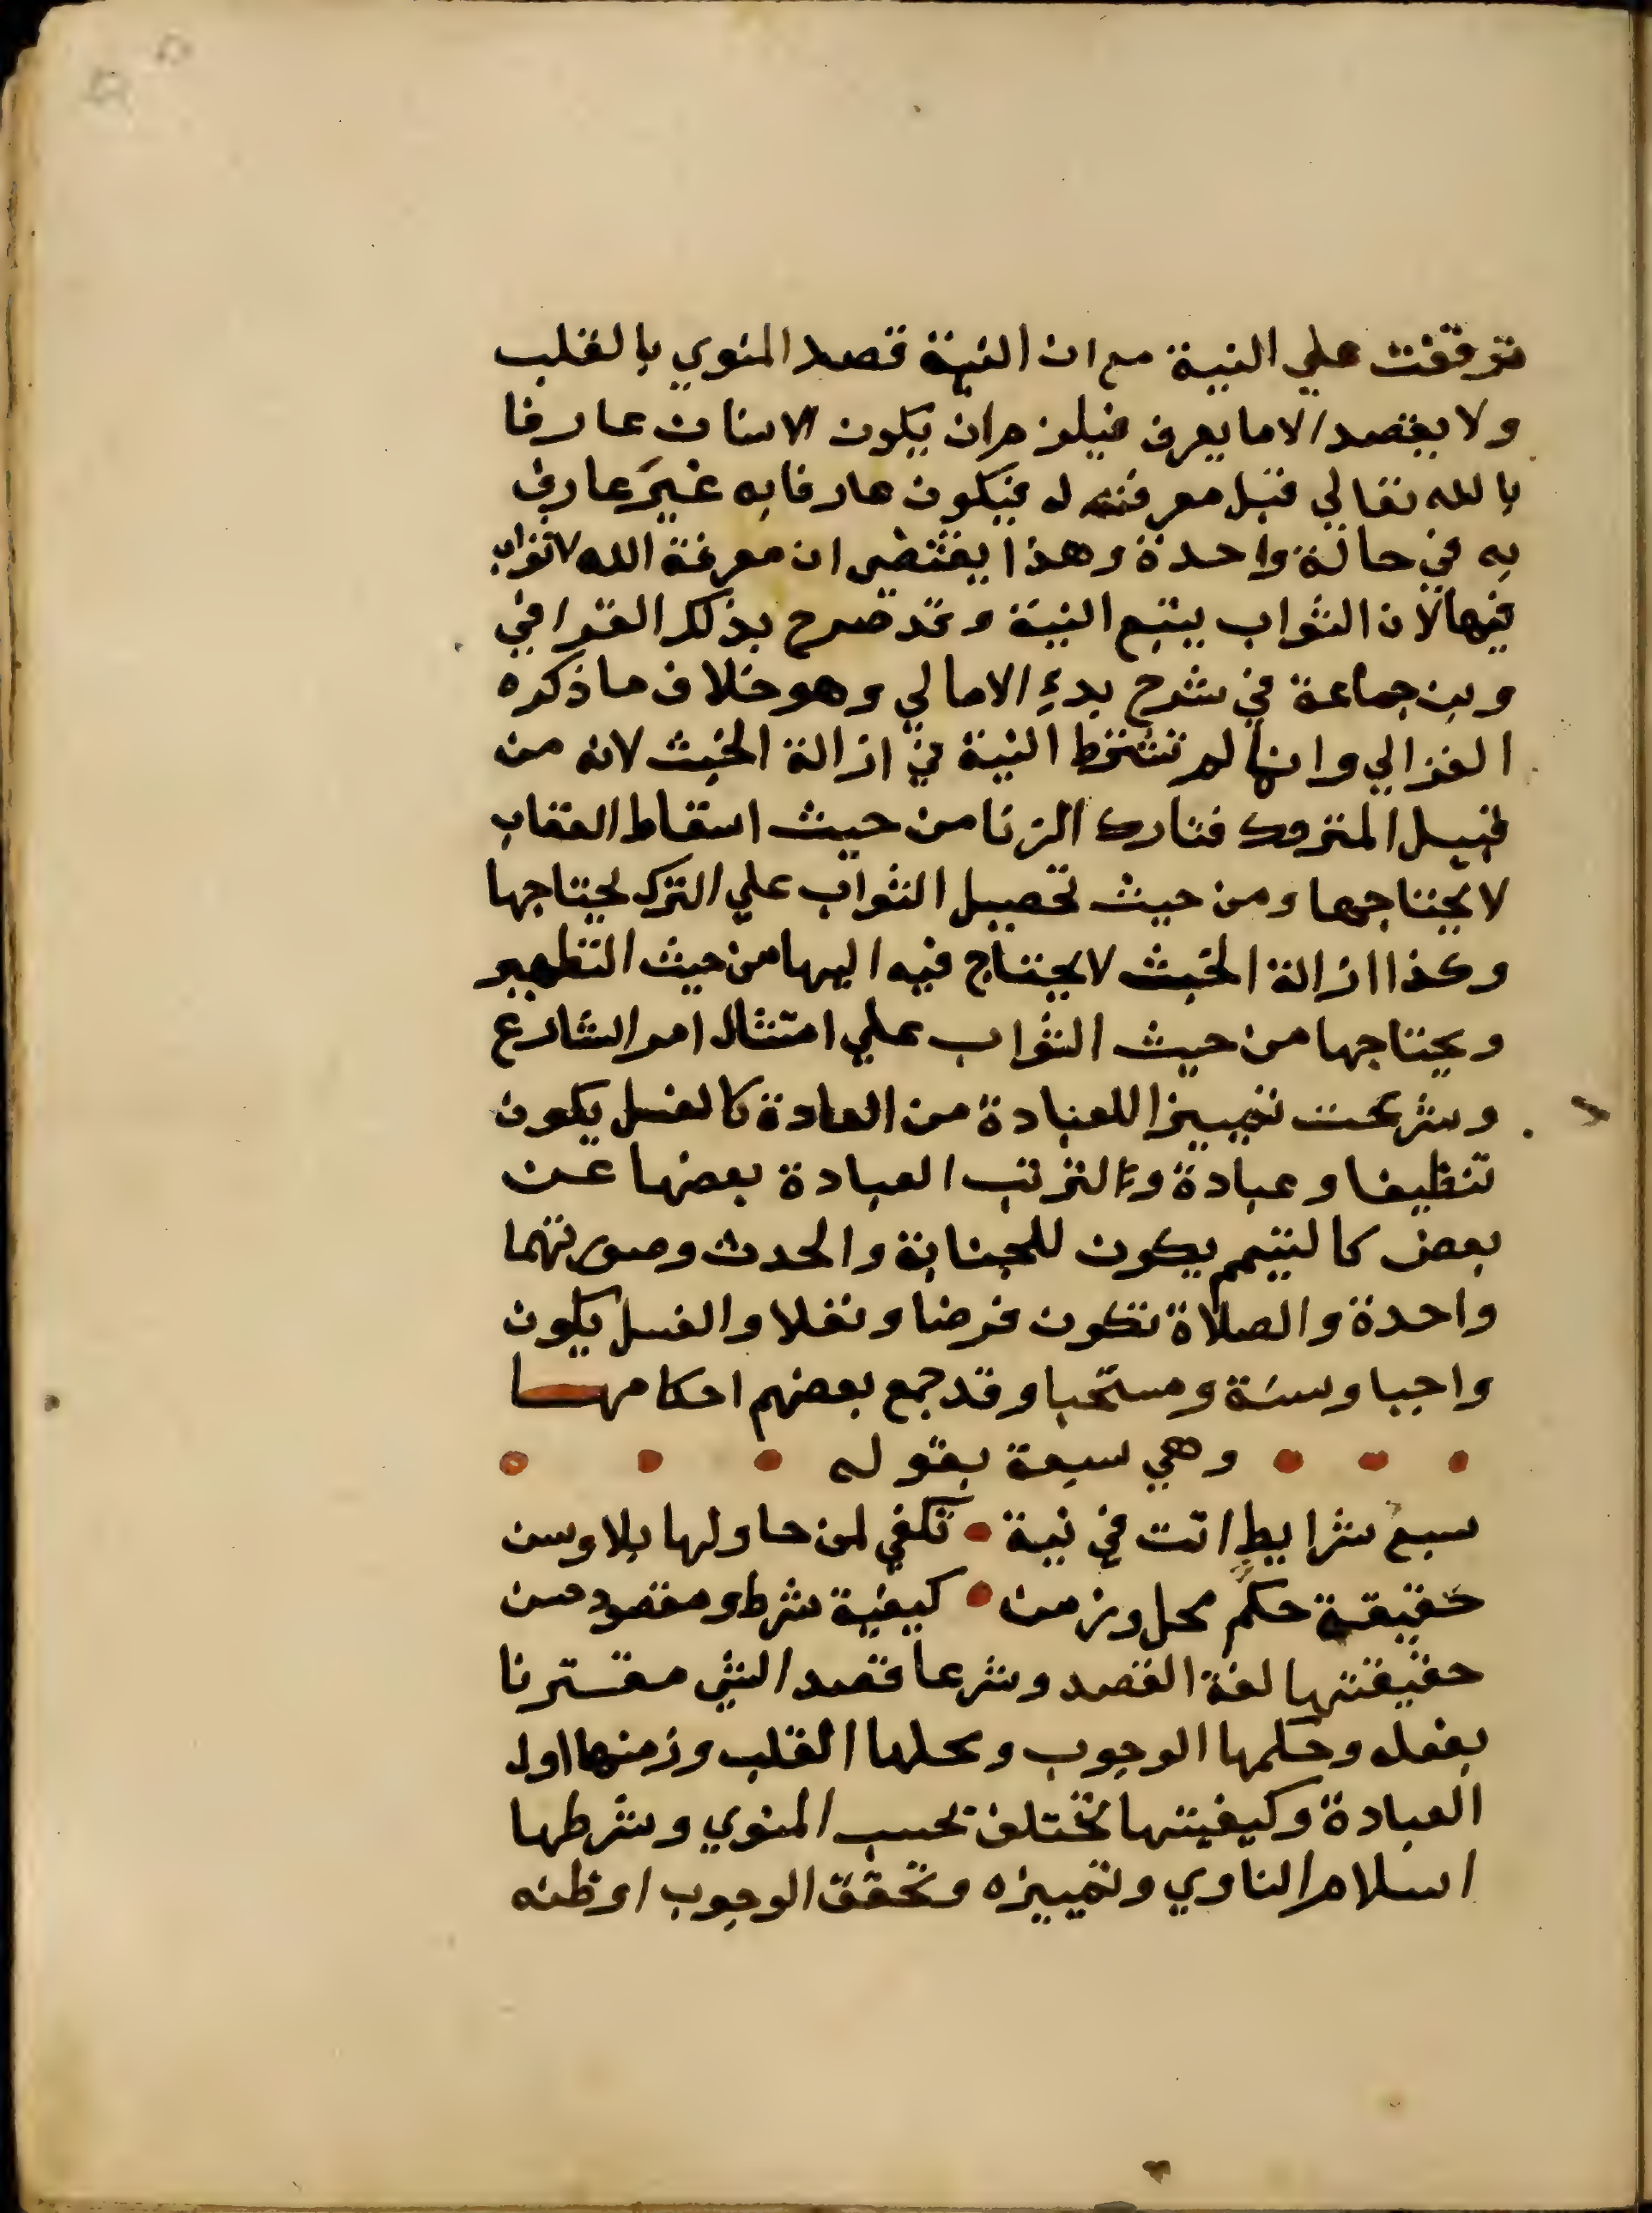 توقفت علي النية مع ان النية قصد المنوي بالقلب
ولا يقصد الا ما يعرف فيلزم ان يكون الانسان عارفا
بالله تعالي قبل معرفته له فيكون عارفا به غيرَ عارف
به في حالة واحدة وهذا يقتضي ان معرفة الله لا ثواب
فيها لان الثواب يتبع النية وقد صرح بذلك القرافي
وبن جماعة في شرح بدءِ الامالي وهو خلاف ما ذكره
الغزالي وانما لم تشترط النية في ازالة الخبث لانه من
قبيل المتروك فتارك الزنا من حيث اسقاط العقاب
لا يحتاجها ومن حيث تحصيل الثواب علي الترك يحتاجها
وكذا ازالة الخبث لا يحتاج فيه اليها من حيث التطهير
ويحتاجها من حيث الثواب علي امتثال امر الشارع
وشرعت تمييزا للعبادة من العادة كالغسل يكون
تنظيفا وعبادة والترتب العبادة بعضها عن
بعض كالتيمم يكون للجنابة والحدث وصورتهما
واحدة والصلاة تكون فرضا ونفلا والغسل يكون
واجبا وسنة ومستحبا وقد جمع بعضهم احكامها
وهي سبعة بقوله
سبع شرايطٍ اتت في نية • تكفي لمن حاولها بلا وسن
حقيقة حكم محل وزمن • كيفية شرط ومقصود حسن
حقيقتها لغة القصد وشرعا قصد الشي مقترنا
بفعله وحكمها الوجوب ومحلها القلب وزمنها اول
العبادة وكيفيتها تختلف بحسب المنوي وشرطها
اسلام الناوي وتمييزه وتحقق الوجوب او ظنه